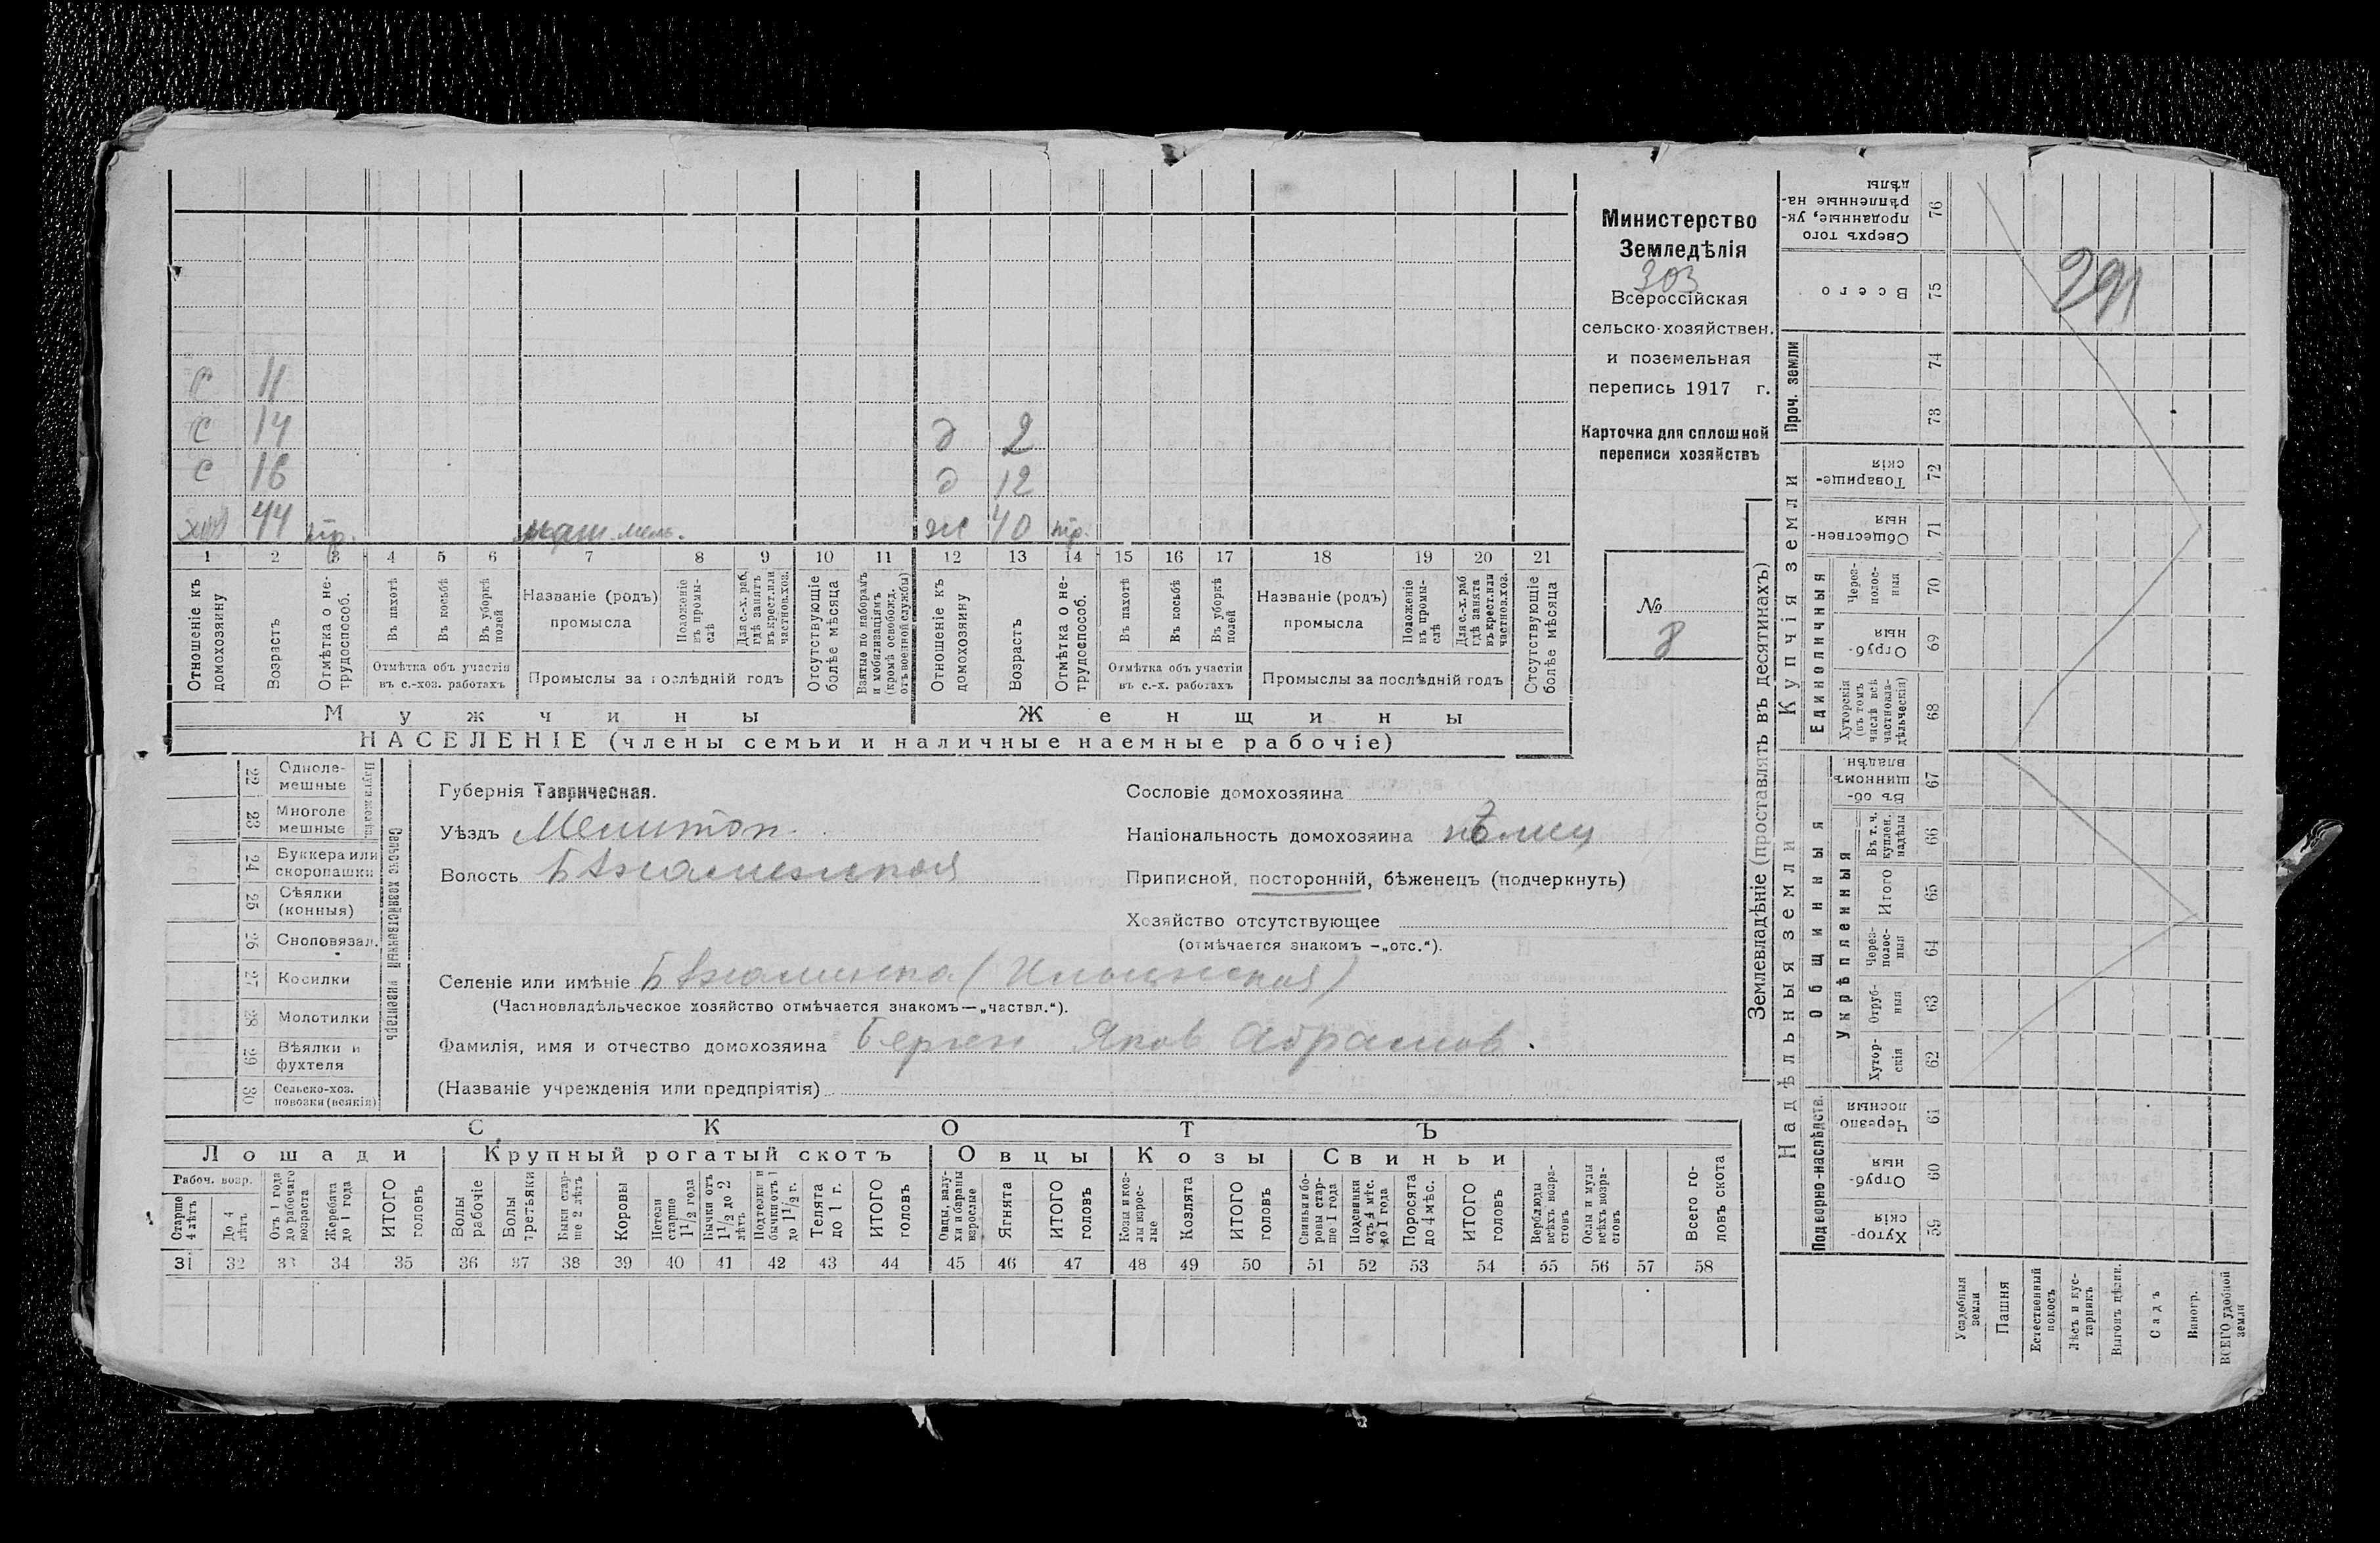 С 11
С 14
С 16
хоз 44 тр. маш. мель.
д 2
д 12
ж 40 тр.
1 2 3 4 5 6 7 8 9 10 11 12 13 14 15 16 17 18 19 20 21
Отношеніе къ домохозяину
Возрастъ
Отмѣтка о не-трудоспособ.
Въ пахотѣ
Въ косьбѣ
Въ уборкѣ полей
Отмѣтка объ участіи въ с.-хоз. работахъ
Названіе (родъ) промысла
Положеніе въ промы-слѣ
Для с.-х. раб. гдѣ занятъ въ крест. или частнов. хоз.
Промыслы за послѣдній годъ
Отсутствующіе болѣе мѣсяца
Взятые по наборамъ и мобилизаціямъ (кромѣ освобожд. отъ военной службы)
Отношеніе къ домохозяину
Возрастъ
Отмѣтка о не-трудоспособ.
Въ пахотѣ
Въ косьбѣ
Въ уборкѣ полей
Отмѣтка объ участіи въ с.-х. работахъ
Названіе (родъ) промысла
Положеніе въ промы-слѣ
Для с.-х. раб гдѣ занята въ крест. или частнов. хоз.
Промыслы за послѣдній годъ
Отсутствующіе болѣе мѣсяца
Мужчины Женщины
НАСЕЛЕНІЕ (члены семьи и наличные наемные рабочіе)
Министерство
Земледѣлія
303
Всероссійская
сельско-хозяйствен.
и поземельная
перепись 1917 г.
Карточка для сплошной
переписи хозяйствъ
№
8
22 Одноле-мешные
23 Многоле мешные
24 Буккера или скоропашки
25 Сѣялки (конныя)
26 Сноповязал.
27 Косилки
28 Молотилки
29 Вѣялки и фухтеля
30 Сельско-хоз. повозки (всякія)
Сельско хозяйственный инвентарь
Губернія Таврическая.
Уѣздъ Мелитоп.
Волость
Сословіе домохозяина
Національность домохозяина нѣмец
Приписной, посторонній, бѣженецъ (подчеркнуть)
Хозяйство отсутствующее
(отмѣчается знакомъ —„отс.“).
Селеніе или имѣніе
(Частновладѣльческое хозяйство отмѣчается знакомъ—„частвл.“).
Фамилія, имя и отчество домохозяина Берген Яков Абрамов.
(Названіе учрежденія или предпріятія)
СКОТЪ
Лошади Крупный рогатый скотъ Овцы Козы Свиньи
Рабоч. возр.
Старше 4 лѣтъ
До 4 лѣтъ
Отъ 1 года до рабочаго возраста
Жеребята до 1 года
ИТОГО головъ
Волы рабочіе
Волы третьяки
Быки стар-ше 2 лѣтъ
Коровы
Нетели старше 1½ года
Бычки отъ 1½ до 2 лѣтъ
Подтелки и бычки отъ 1 до 1½ г.
Телята до 1 г.
ИТОГО головъ
Овцы, валу-хи и бараны взрослые
Ягнята
ИТОГО головъ
Козы и коз-лы взрос-лые
Козлята
ИТОГО головъ
Свиньи и бо-ровы стар-ше 1 года
Подсвинки отъ 4 мѣс. до 1 года
Поросята до 4 мѣс.
ИТОГО головъ
Верблюды всѣхъ возра-стовъ
Ослы и мулы всѣхъ возра-стовъ
Всего го-ловъ скота
31 32 33 34 35 36 37 38 39 40 41 42 43 44 45 46 47 48 49 50 51 52 53 54 55 56 57 58
Землевладѣніе (проставлять въ десятинахъ)
291
Сверхъ того проданные, ук-рѣпленные на-дѣлы 76
Всего 75
Проч. земли
74
73
Купчія земли
Товарище-скія 72
Обществен-ныя 71
Единоличныя
Через-полос-ныя 70
Отруб-ныя 69
Хуторскія (въ томъ числѣ всѣ частновла-дѣльческія) 68
Надѣльныя земли
Общинныя
Въ об-щинномъ владѣн. 67
Укрѣпленныя
Въ т. ч. куплен. надѣлы 66
Итого 65
Через-полос-ныя 64
Отруб-ныя 63
Хутор-скія 62
Подворно-наслѣдств.
Черезпо лосныя 61
Отруб-ныя 60
Хутор-скія 59
Усадебныя земли
Пашня
Естественный покосъ
Лѣсъ и кус-тарникъ
Выгонъ цѣлин.
Садъ
Виногр.
ВСЕГО удобной земли